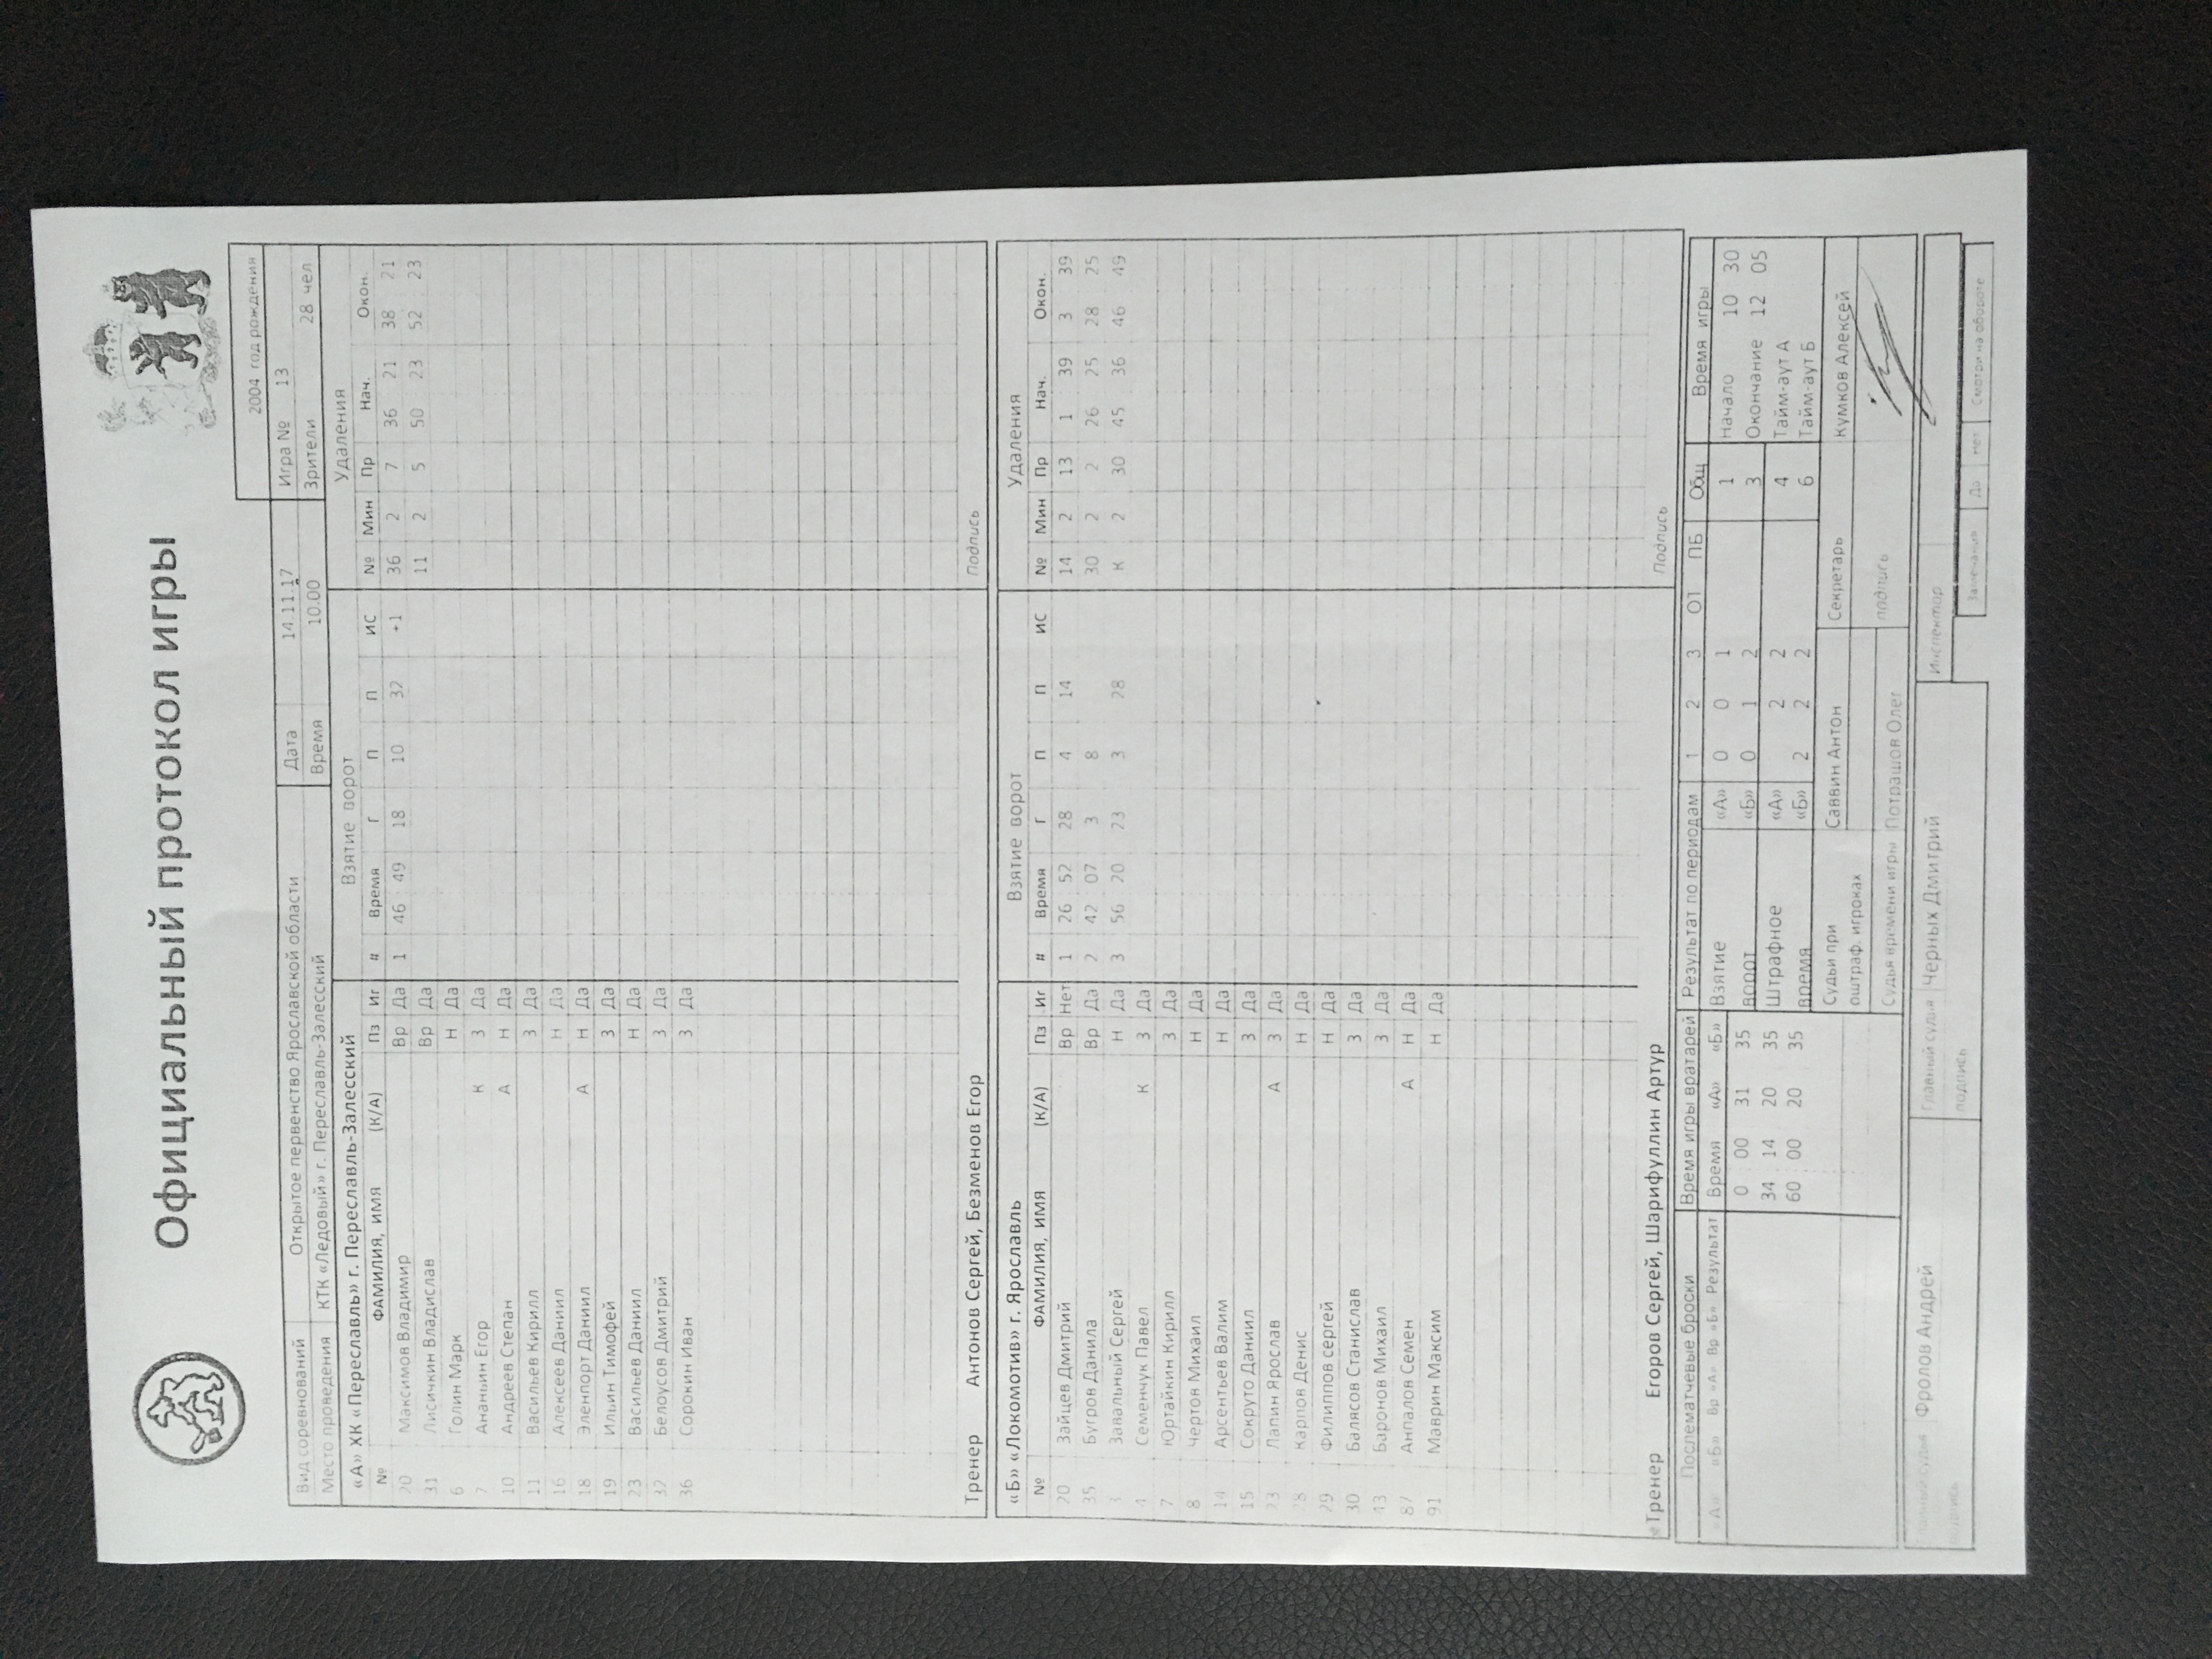 Официальный протокол игры
2004 год рождения
Вид соревнований Открытое первенство Ярославской области Дата 14.11.17 Игра № 13
Место проведения КТК «Ледовый» г. Переславль-Залесский Время 10.00 Зрители 28 чел
«А» ХК «Переславль» г. Переславль-Залесский Взятие ворот Удаления
№ ФАМИЛИЯ, ИМЯ (К/А) Пз Иг # Время Г П П ИС № Мин Пр Нач. Окон.
20 Максимов Владимир Вр Да 1 46 49 18 10 32 +1 36 2 7 36 21 38 21
31 Лисичкин Владислав Вр Да 11 2 5 50 23 52 23
6 Голин Марк Н Да
7 Ананьин Егор К З Да
10 Андреев Степан А Н Да
11 Васильев Кирилл З Да
16 Алексеев Даниил Н Да
18 Эленпорт Даниил А Н Да
19 Ильин Тимофей З Да
23 Васильев Даниил Н Да
32 Белоусов Дмитрий З Да
36 Сорокин Иван З Да
Тренер Антонов Сергей, Безменов Егор Подпись
«Б» «Локомотив» г. Ярославль Взятие ворот Удаления
№ ФАМИЛИЯ, ИМЯ (К/А) Пз Иг # Время Г П П ИС № Мин Пр Нач. Окон.
20 Зайцев Дмитрий Вр Нет 1 26 52 28 4 14 14 2 13 1 39 3 39
35 Бугров Данила Вр Да 2 42 07 3 8 30 2 2 26 25 28 25
3 Завальный Сергей Н Да 3 56 20 23 3 28 К 2 30 45 36 46 49
4 Семенчук Павел К З Да
7 Юртайкин Кирилл З Да
8 Чертов Михаил Н Да
14 Арсентьев Валим Н Да
15 Сокруто Даниил З Да
23 Лапин Ярослав А З Да
28 Карпов Денис Н Да
29 Филиппов сергей Н Да
30 Балясов Станислав З Да
43 Баронов Михаил З Да
87 Анпалов Семен А Н Да
91 Маврин Максим Н Да
Тренер Егоров Сергей, Шарифуллин Артур Подпись
Послематчевые броски Время игры вратарей Результат по периодам 1 2 3 ОТ ПБ Общ Время игры
«А» «Б» Вр «А» Вр «Б» Результат Время «А» «Б» Взятие «А» 0 0 1 1 Начало 10 30
0 00 31 35 ворот «Б» 0 1 2 3 Окончание 12 05
34 14 20 35 Штрафное «А» 2 2 4 Тайм-аут А
60 00 20 35 время «Б» 2 2 2 6 Тайм-аут Б
Судьи при Саввин Антон Секретарь Кумков Алексей
оштраф. игроках подпись
Судья времени игры Потрашов Олег
судья Фролов Андрей Главный судья Черных Дмитрий Инспектор
подпись подпись
Замечания Да Нет Смотри на обороте